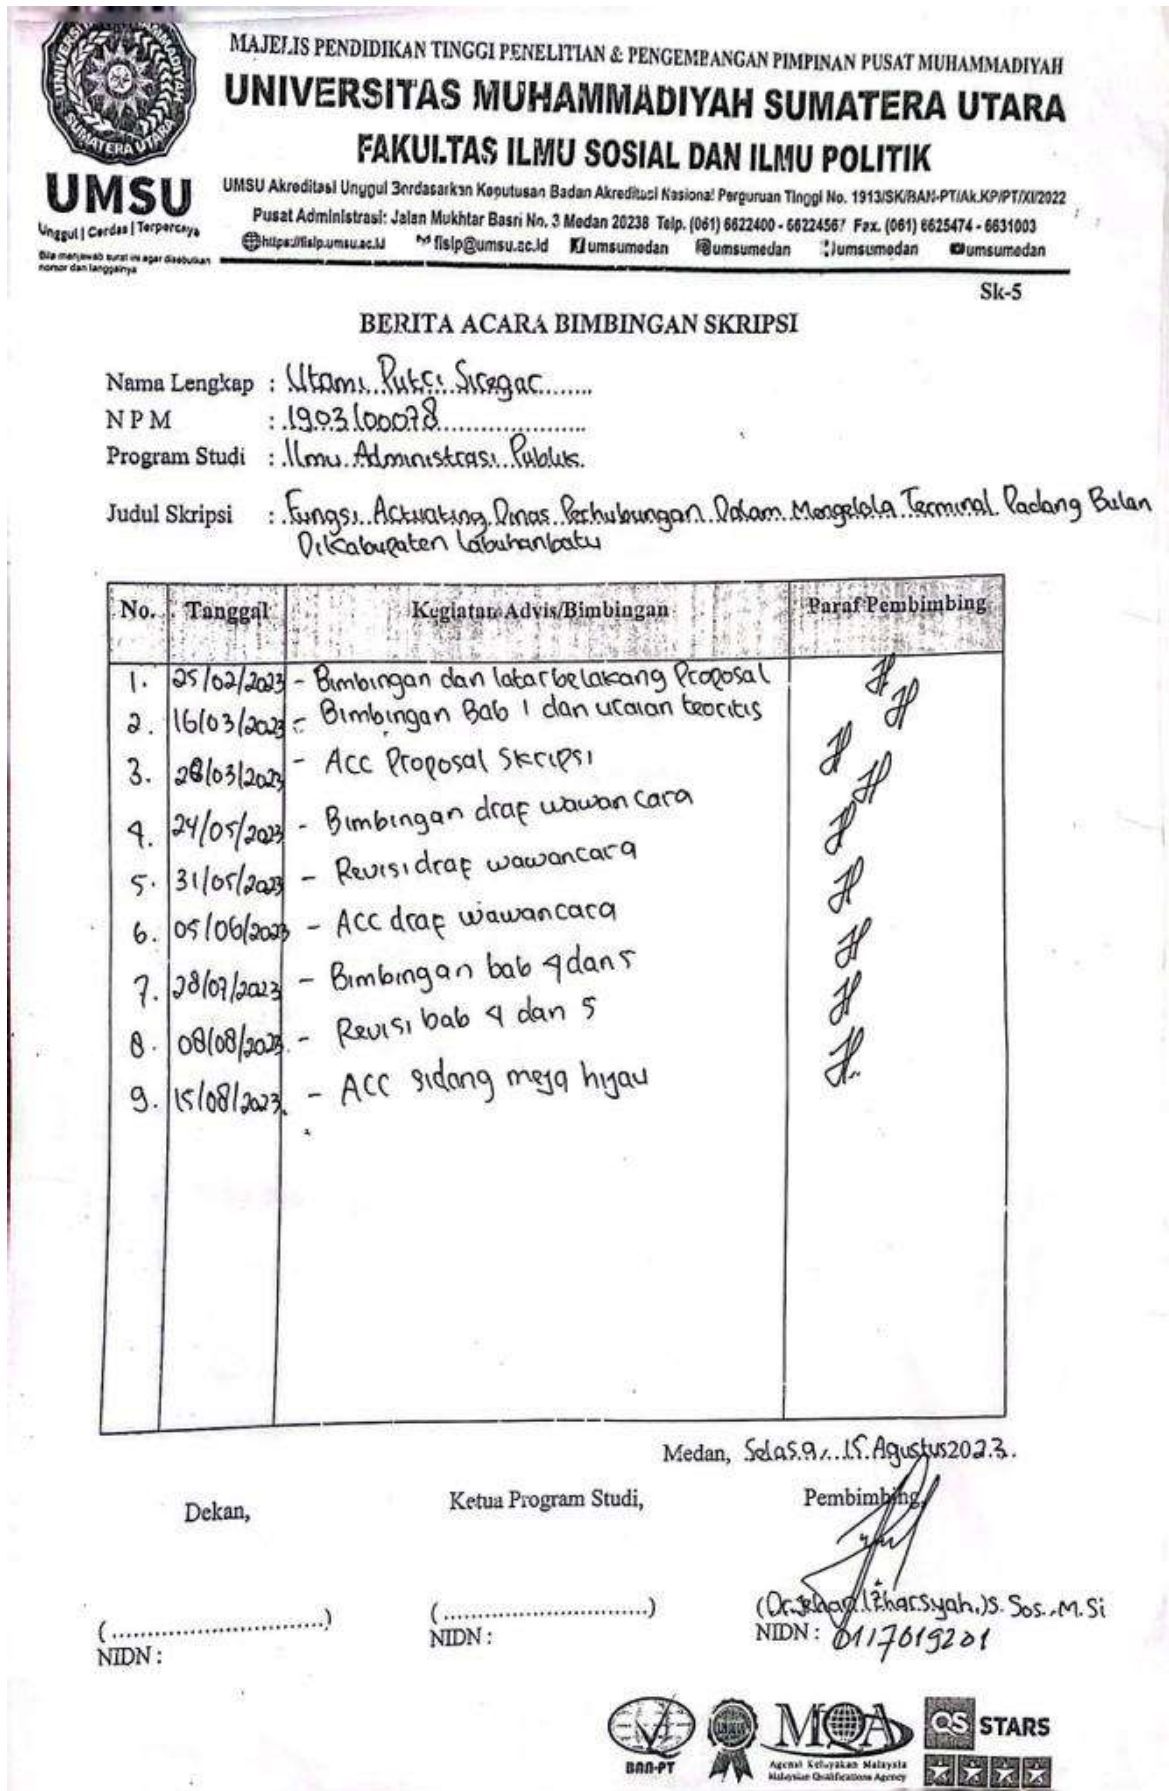 MAJELIS PENDIDIKAN TINGGI PENELITIAN & PENGEMBANGAN PIMPINAN PUSAT MUHAMMADIYAH
UNIVERSITAS MUHAMMADIYAH SUMATERA UTARA
FAKULTAS ILMU SOSIAL DAN ILMU POLITIK
UMSU
Unggul | Cerdas | Terpercaya
Bila menjawab surat ini agar disebutkan
nomor dan tanggalnya
UMSU Akreditasi Unggul Berdasarkan Keputusan Badan Akreditasi Nasional Perguruan Tinggi No. 1913/SK/BAN-PT/Ak.KP/PT/XI/2022
Pusat Administrasi: Jalan Mukhtar Basri No. 3 Medan 20238 Telp. (061) 6622400 - 66224567 Fax. (061) 6625474 - 6631003
https://fisip.umsu.ac.id fisip@umsu.ac.id umsumedan umsumedan umsumedan umsumedan
Sk-5
BERITA ACARA BIMBINGAN SKRIPSI
Nama Lengkap : Utami Putri Siregar
NPM : 1903100078
Program Studi : Ilmu Administrasi Publik
Judul Skripsi : Fungsi Actuating Dinas Perhubungan Dalam Mengelola Terminal Padang Bulan
DiKabupaten Labuhanbatu
No. Tanggal Kegiatan Advis/Bimbingan Paraf Pembimbing
1. 25/02/2023 - Bimbingan dan latarbelakang Proposal
2. 16/03/2023 - Bimbingan Bab 1 dan uraian teoritis
3. 28/03/2023 - ACC Proposal Skripsi
4. 24/05/2023 - Bimbingan draf wawancara
5. 31/05/2023 - Revisi draf wawancara
6. 05/06/2023 - ACC draf wawancara
7. 28/07/2023 - Bimbingan bab 4 dan 5
8. 08/08/2023 - Revisi bab 4 dan 5
9. 15/08/2023 - ACC sidang meja hijau
Medan, Selasa, 15 Agustus 2023.
Dekan, Ketua Program Studi, Pembimbing,
(..............................) (..............................) (Dr. Jehan Izharsyah,)S.Sos.,M.Si
NIDN : NIDN : NIDN : 0117019201
BAN-PT
MQA
Agensi Kelayakan Malaysia
Malaysian Qualifications Agency
QS STARS